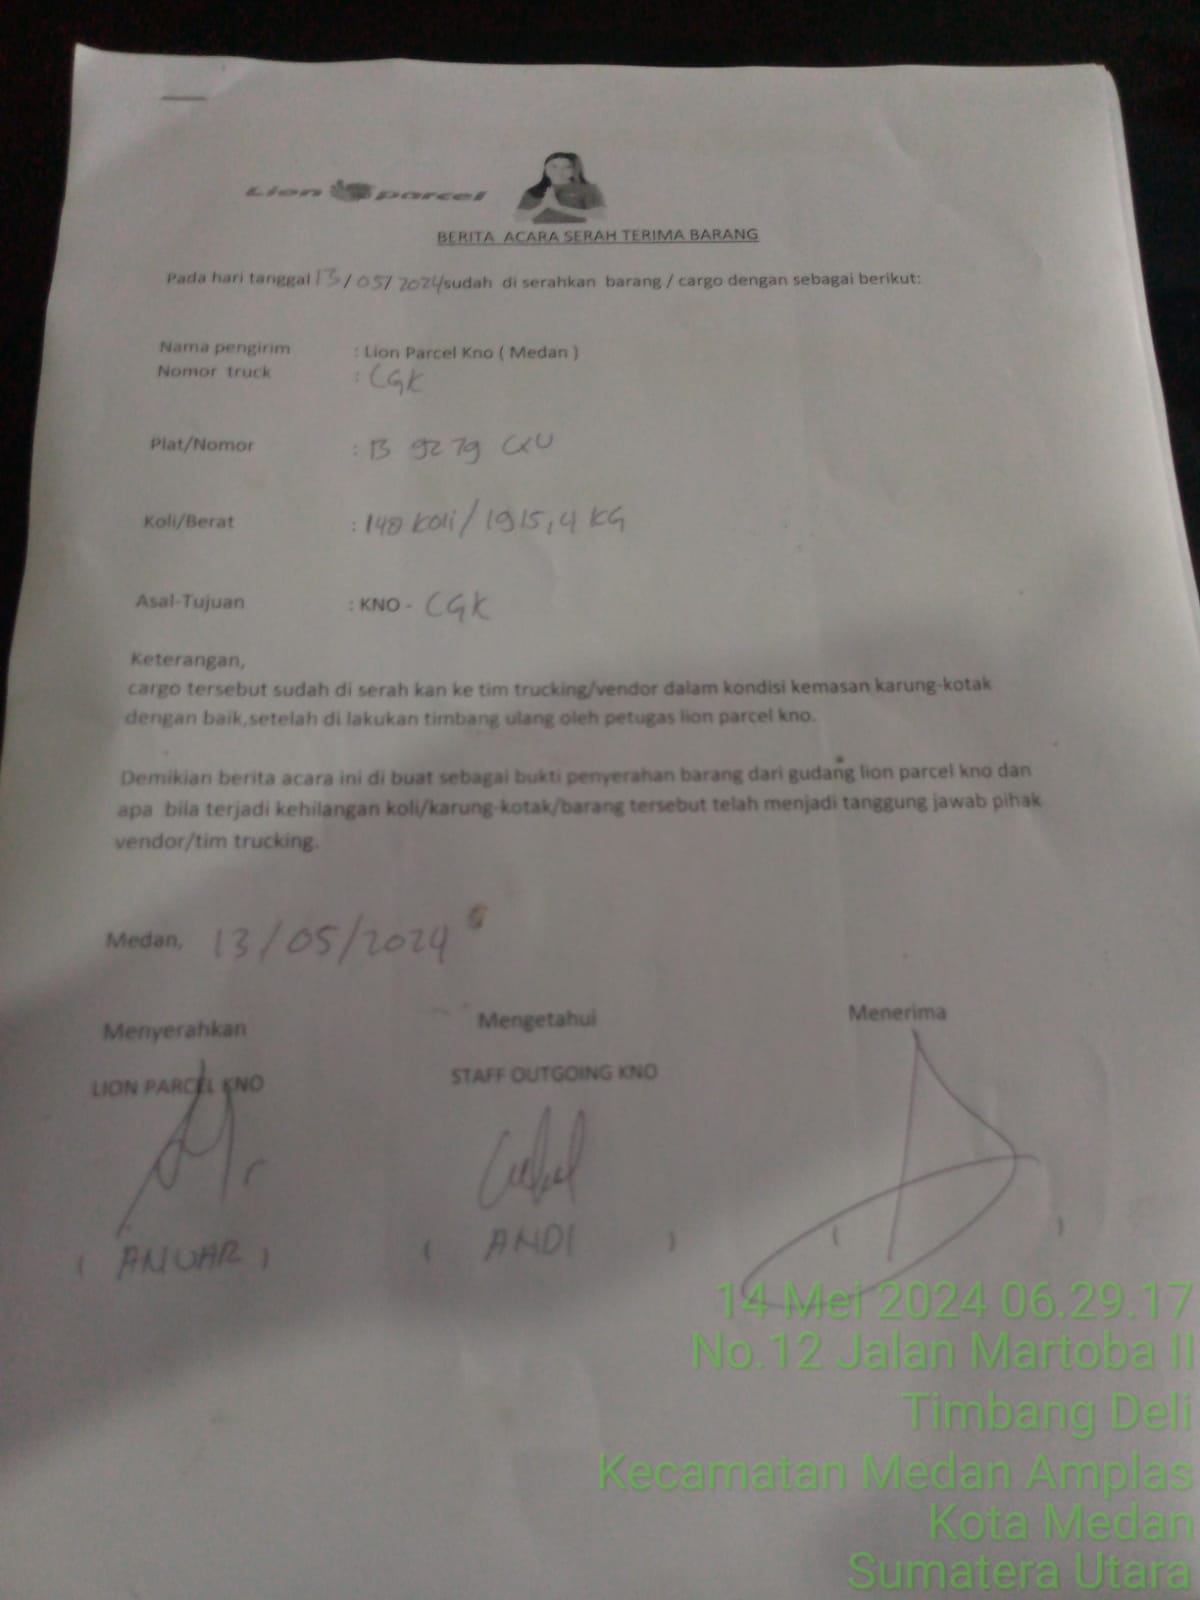 Lion parcel
BERITA ACARA SERAH TERIMA BARANG
Pada hari tanggal 13/05/2024/sudah di serahkan barang / cargo dengan sebagai berikut:
Nama pengirim : Lion Parcel Kno ( Medan )
Nomor truck : CGK
Plat/Nomor : B 9279 CXU
Koli/Berat : 148 Koli/1915,4 KG
Asal-Tujuan : KNO - CGK
Keterangan,
cargo tersebut sudah di serah kan ke tim trucking/vendor dalam kondisi kemasan karung-kotak
dengan baik,setelah di lakukan timbang ulang oleh petugas lion parcel kno.
Demikian berita acara ini di buat sebagai bukti penyerahan barang dari gudang lion parcel kno dan
apa bila terjadi kehilangan koli/karung-kotak/barang tersebut telah menjadi tanggung jawab pihak
vendor/tim trucking.
Medan, 13/05/2024
Menyerahkan Mengetahui Menerima
LION PARCEL KNO STAFF OUTGOING KNO
( ANUAR ) ( ANDI ) ( )
14 Mei 2024 06.29.17
No.12 Jalan Martoba II
Timbang Deli
Kecamatan Medan Amplas
Kota Medan
Sumatera Utara